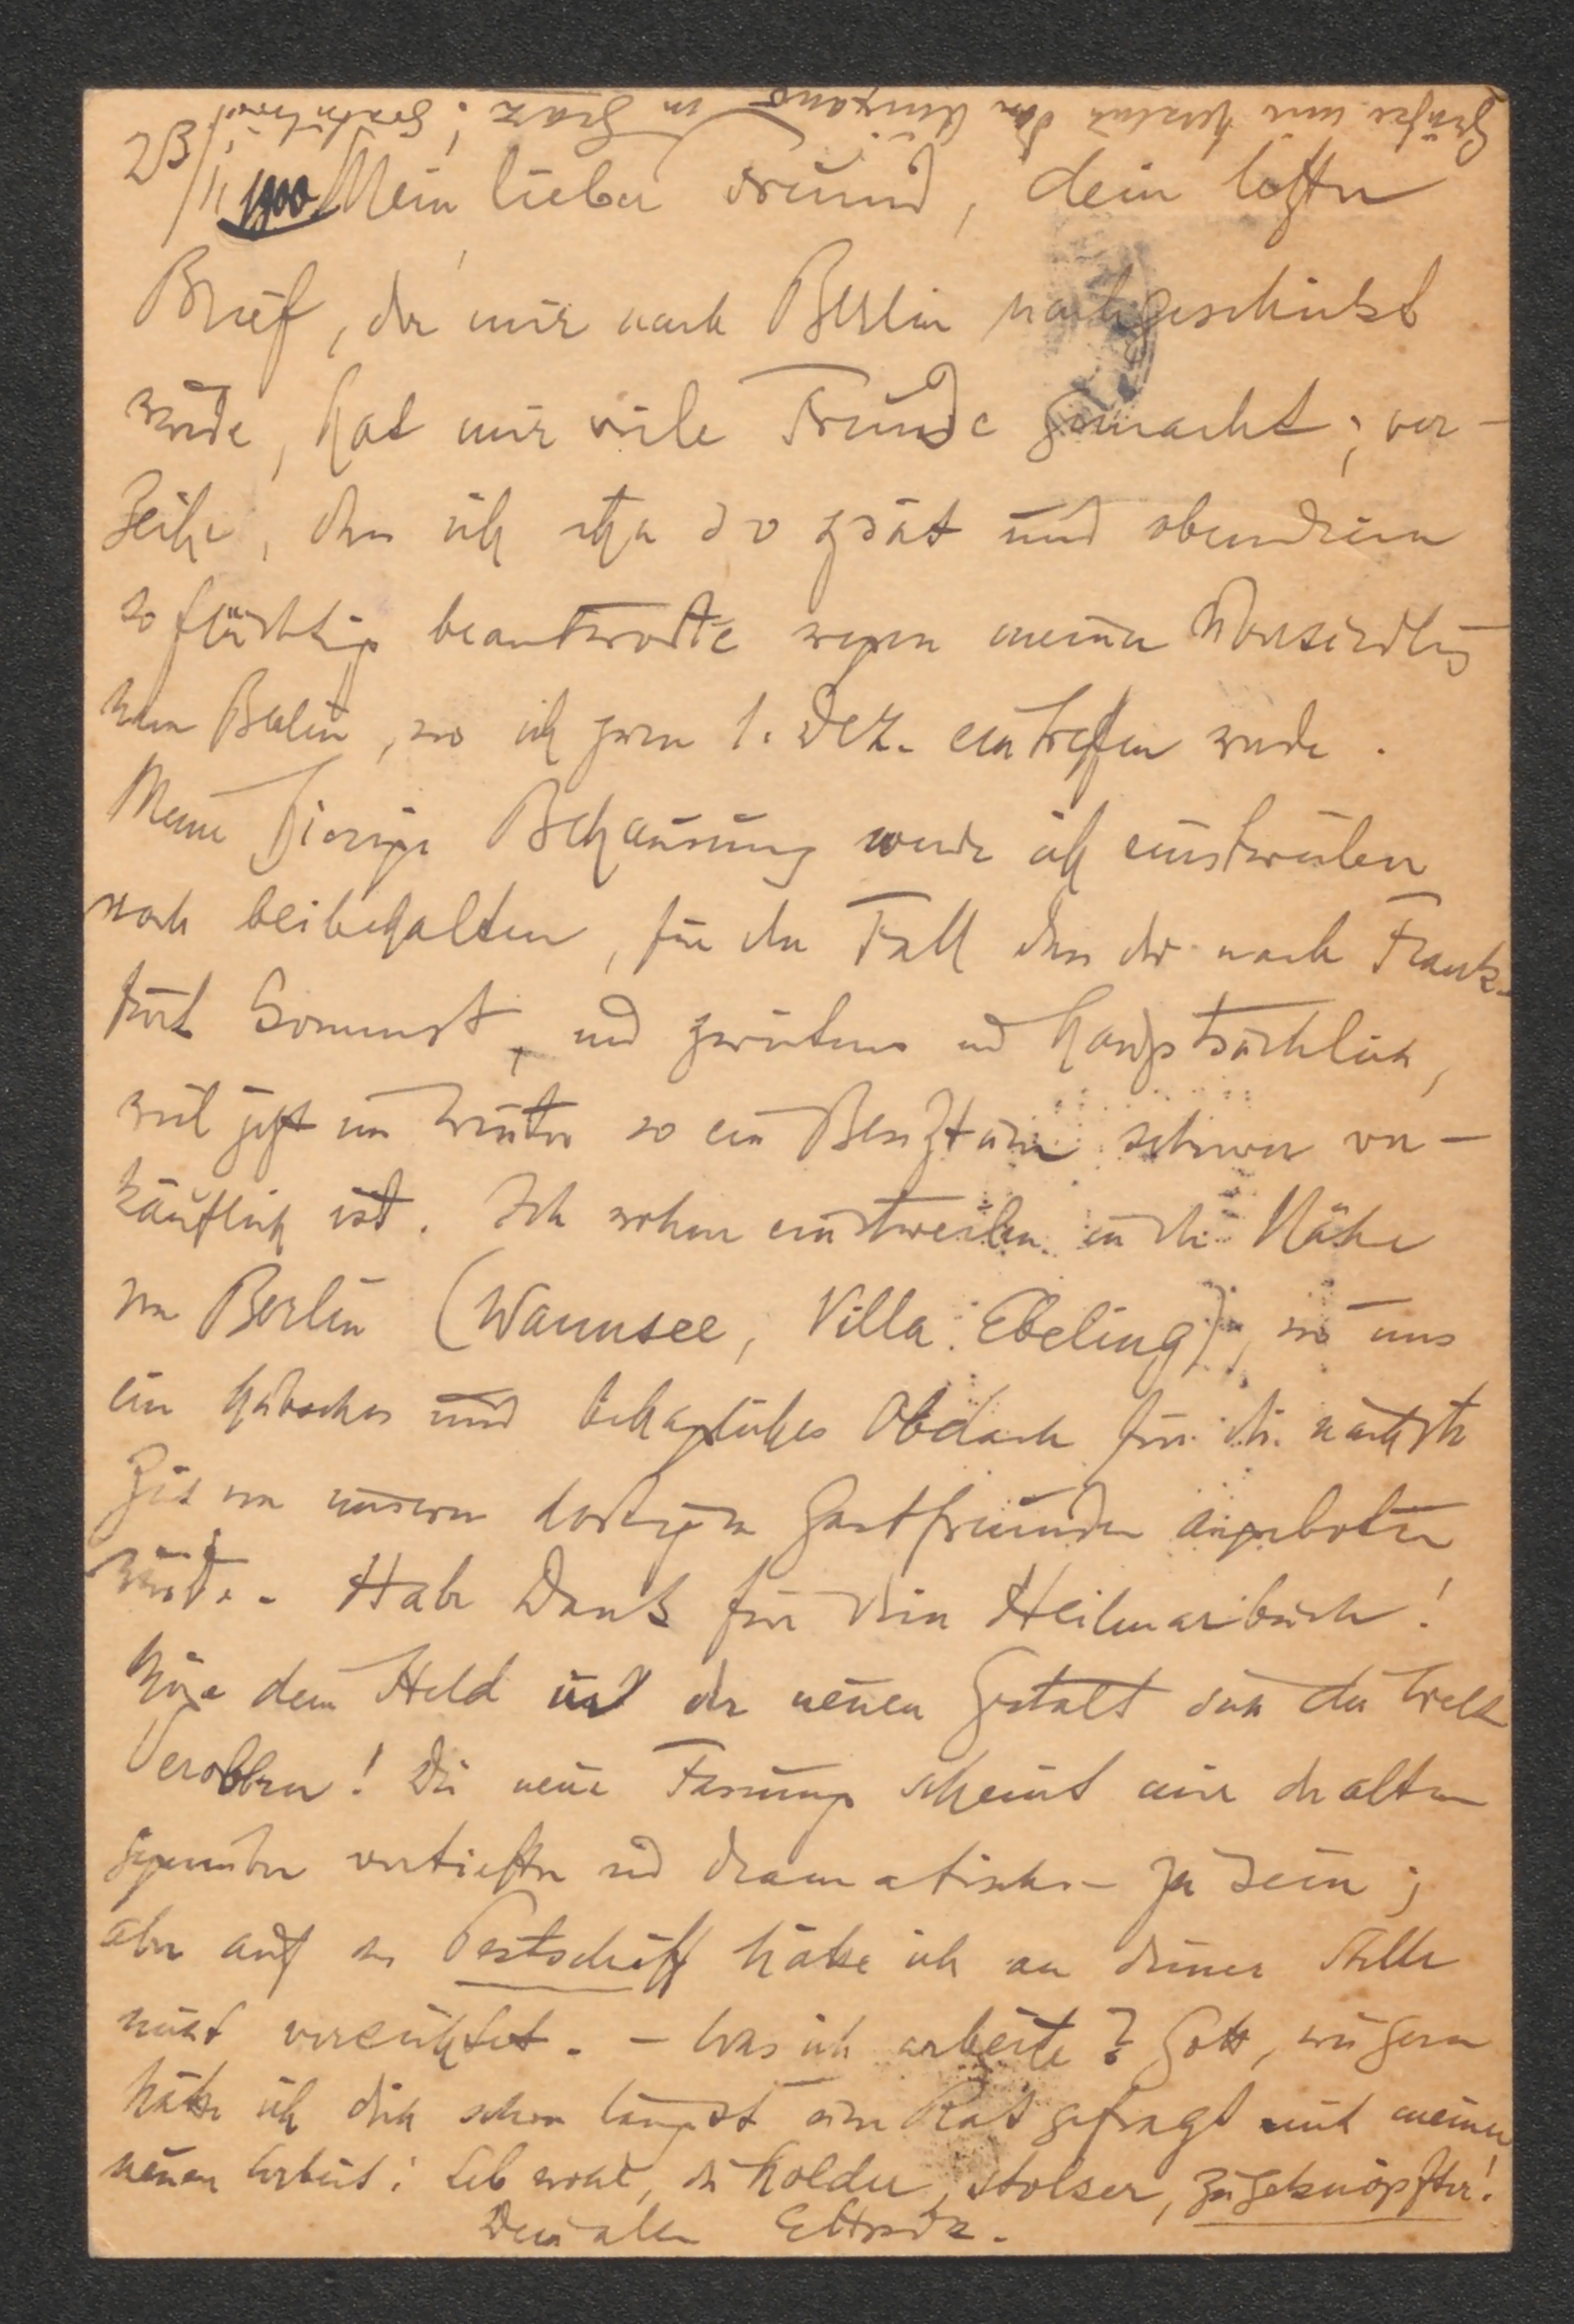 Grüße mir herzlich den in Graz;
23/11 1900 Mein lieber Freund, dein letzter
Brief, der mir nach Berlin nachgeschickt
wurde, hat mir viele Freude gemacht; ver-
zeihe, dass ich ihn so spät und obendrein
so flüchtig beantworte wegen meiner Übersiedlung
nach Berlin, wo ich gegen 1. Dez. eintreffen werde.
Meine hiesige Behausung werde ich einstweilen
noch beibehalten, für den Fall dass du nach Frank-
furt kommst, und zweitens und hauptsächlich,
weil jetzt im Winter so ein Besitztum schwer ver-
käuflich ist. Ich wohne einstweilen in der Nähe
von Berlin (Wannsee, Villa Ebeling), wo uns
ein hübsches und behagliches Obdach für die nächste
Zeit von unseren dortigen Gastfreunden angeboten
wurde. Hab Dank für dein Heilmarbuch!
Möge dem Held in der neuen Gestalt sich die Welt
erobern! Die neue Fassung scheint mir der alten
gegenüber vertiefter und dramatischer zu sein;
aber auf das Pestschiff hätte ich an deiner Stelle
nicht verzichtet. – Was ich arbeite? Gott, wie gern
hätte ich dich schon längst um Rat gefragt mit meiner
neuen Arbeit! Leb wohl, du holder, stolzer, zugeknöpfter!
Dein alter